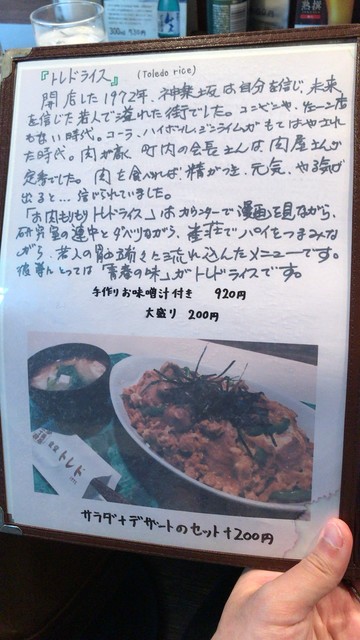 300ml 930円
『トレドライス』 (Toledo rice)
開店した1972年、神楽坂は自分を信じ、未来
を信じた若人で溢れた街でした。コンビニや、チェーン店
もない時代。コーラ、ハイボール、ジンライムがもてはやされ
た時代。肉が高く、町内の会長さんは、肉屋さんが
定番でした。肉を食べれば、精がつき、元気、やる気が
出ると…信じられていました。
「お肉もりもりトレドライス」はカウンターで漫画を見ながら、
研究室の連中とダベリながら、雀荘でパイをつまみな
がら、若人の胃
流れ込んだメニューです。
とっては「青春の味」がトレドライスです。
手作りお味噌汁付き 920円
大盛り 200円
トレド
サラダ+デザートのセット+200円